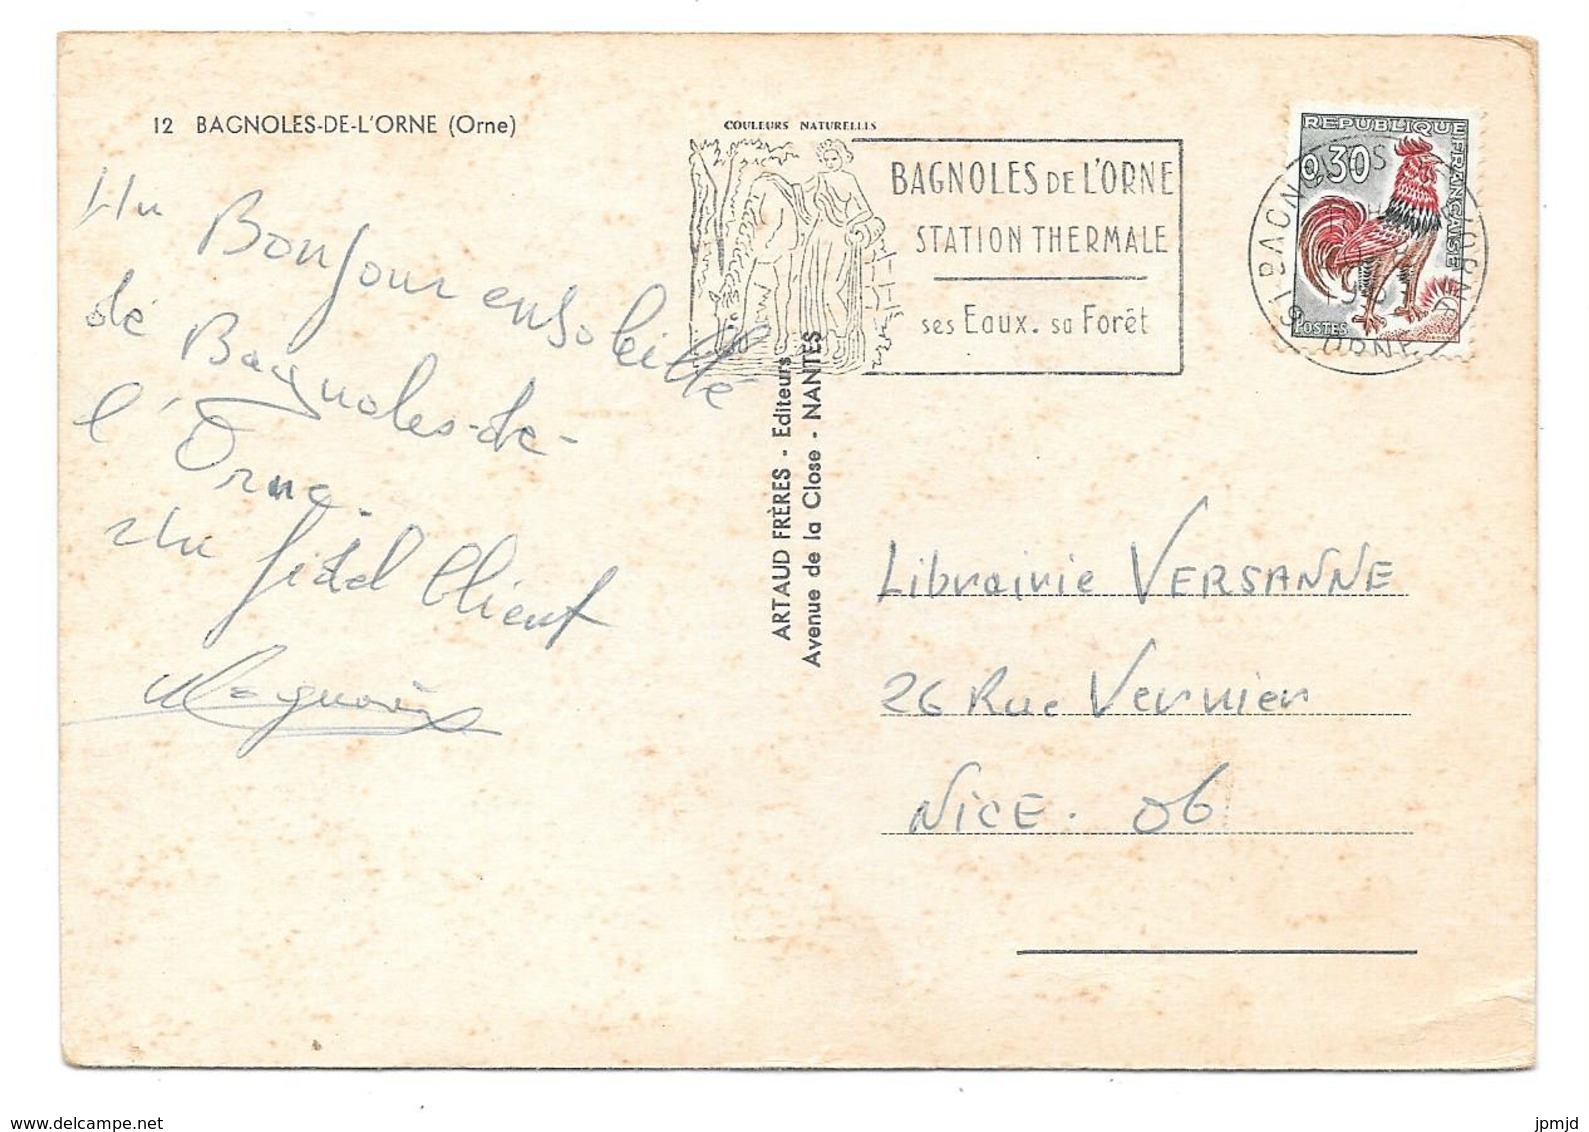 12 BAGNOLES-DE-L'ORNE (Orne)
Un Bonjour ensoleillé
de Bagnoles-de-
l'Orne.
Un fidel Client
COULEURS NATURELLES
BAGNOLES DE L'ORNE
STATION THERMALE
ses Eaux. sa Forêt
REPUBLIQUE FRANÇAISE
0,30
POSTES
ORNE
ARTAUD FRÈRES - Editeurs
Avenue de la Close - NANTES
Librairie VERSANNE
26 Rue Vernier
NICE. 06
www.delcampe.net
jpmjd